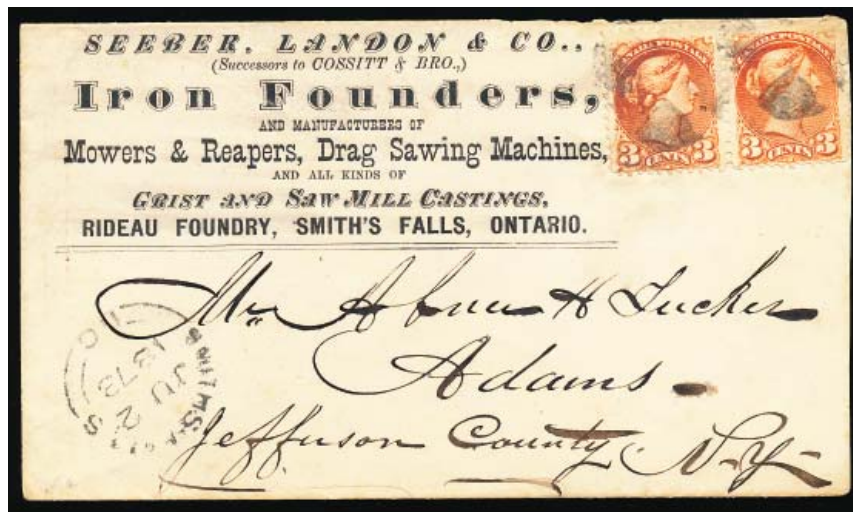 SEEBER, LANDON & CO.,
(Successors to COSSITT & BRO.,)
Iron Founders,
AND MANUFACTURERS OF
Mowers & Reapers, Drag Sawing Machines,
AND ALL KINDS OF
GRIST AND SAW MILL CASTINGS,
RIDEAU FOUNDRY, SMITH'S FALLS, ONTARIO.
CANADA POSTAGE
3 CENTS 3
CANADA POSTAGE
3 CENTS 3
Mr Abner H Tucker
Adams
Jefferson County N-Y-
JU 2
1873